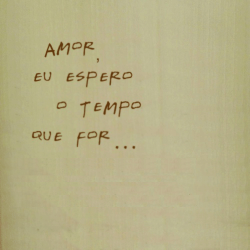 AMOR,
EU ESPERO
O TEMPO
QUE FOR...